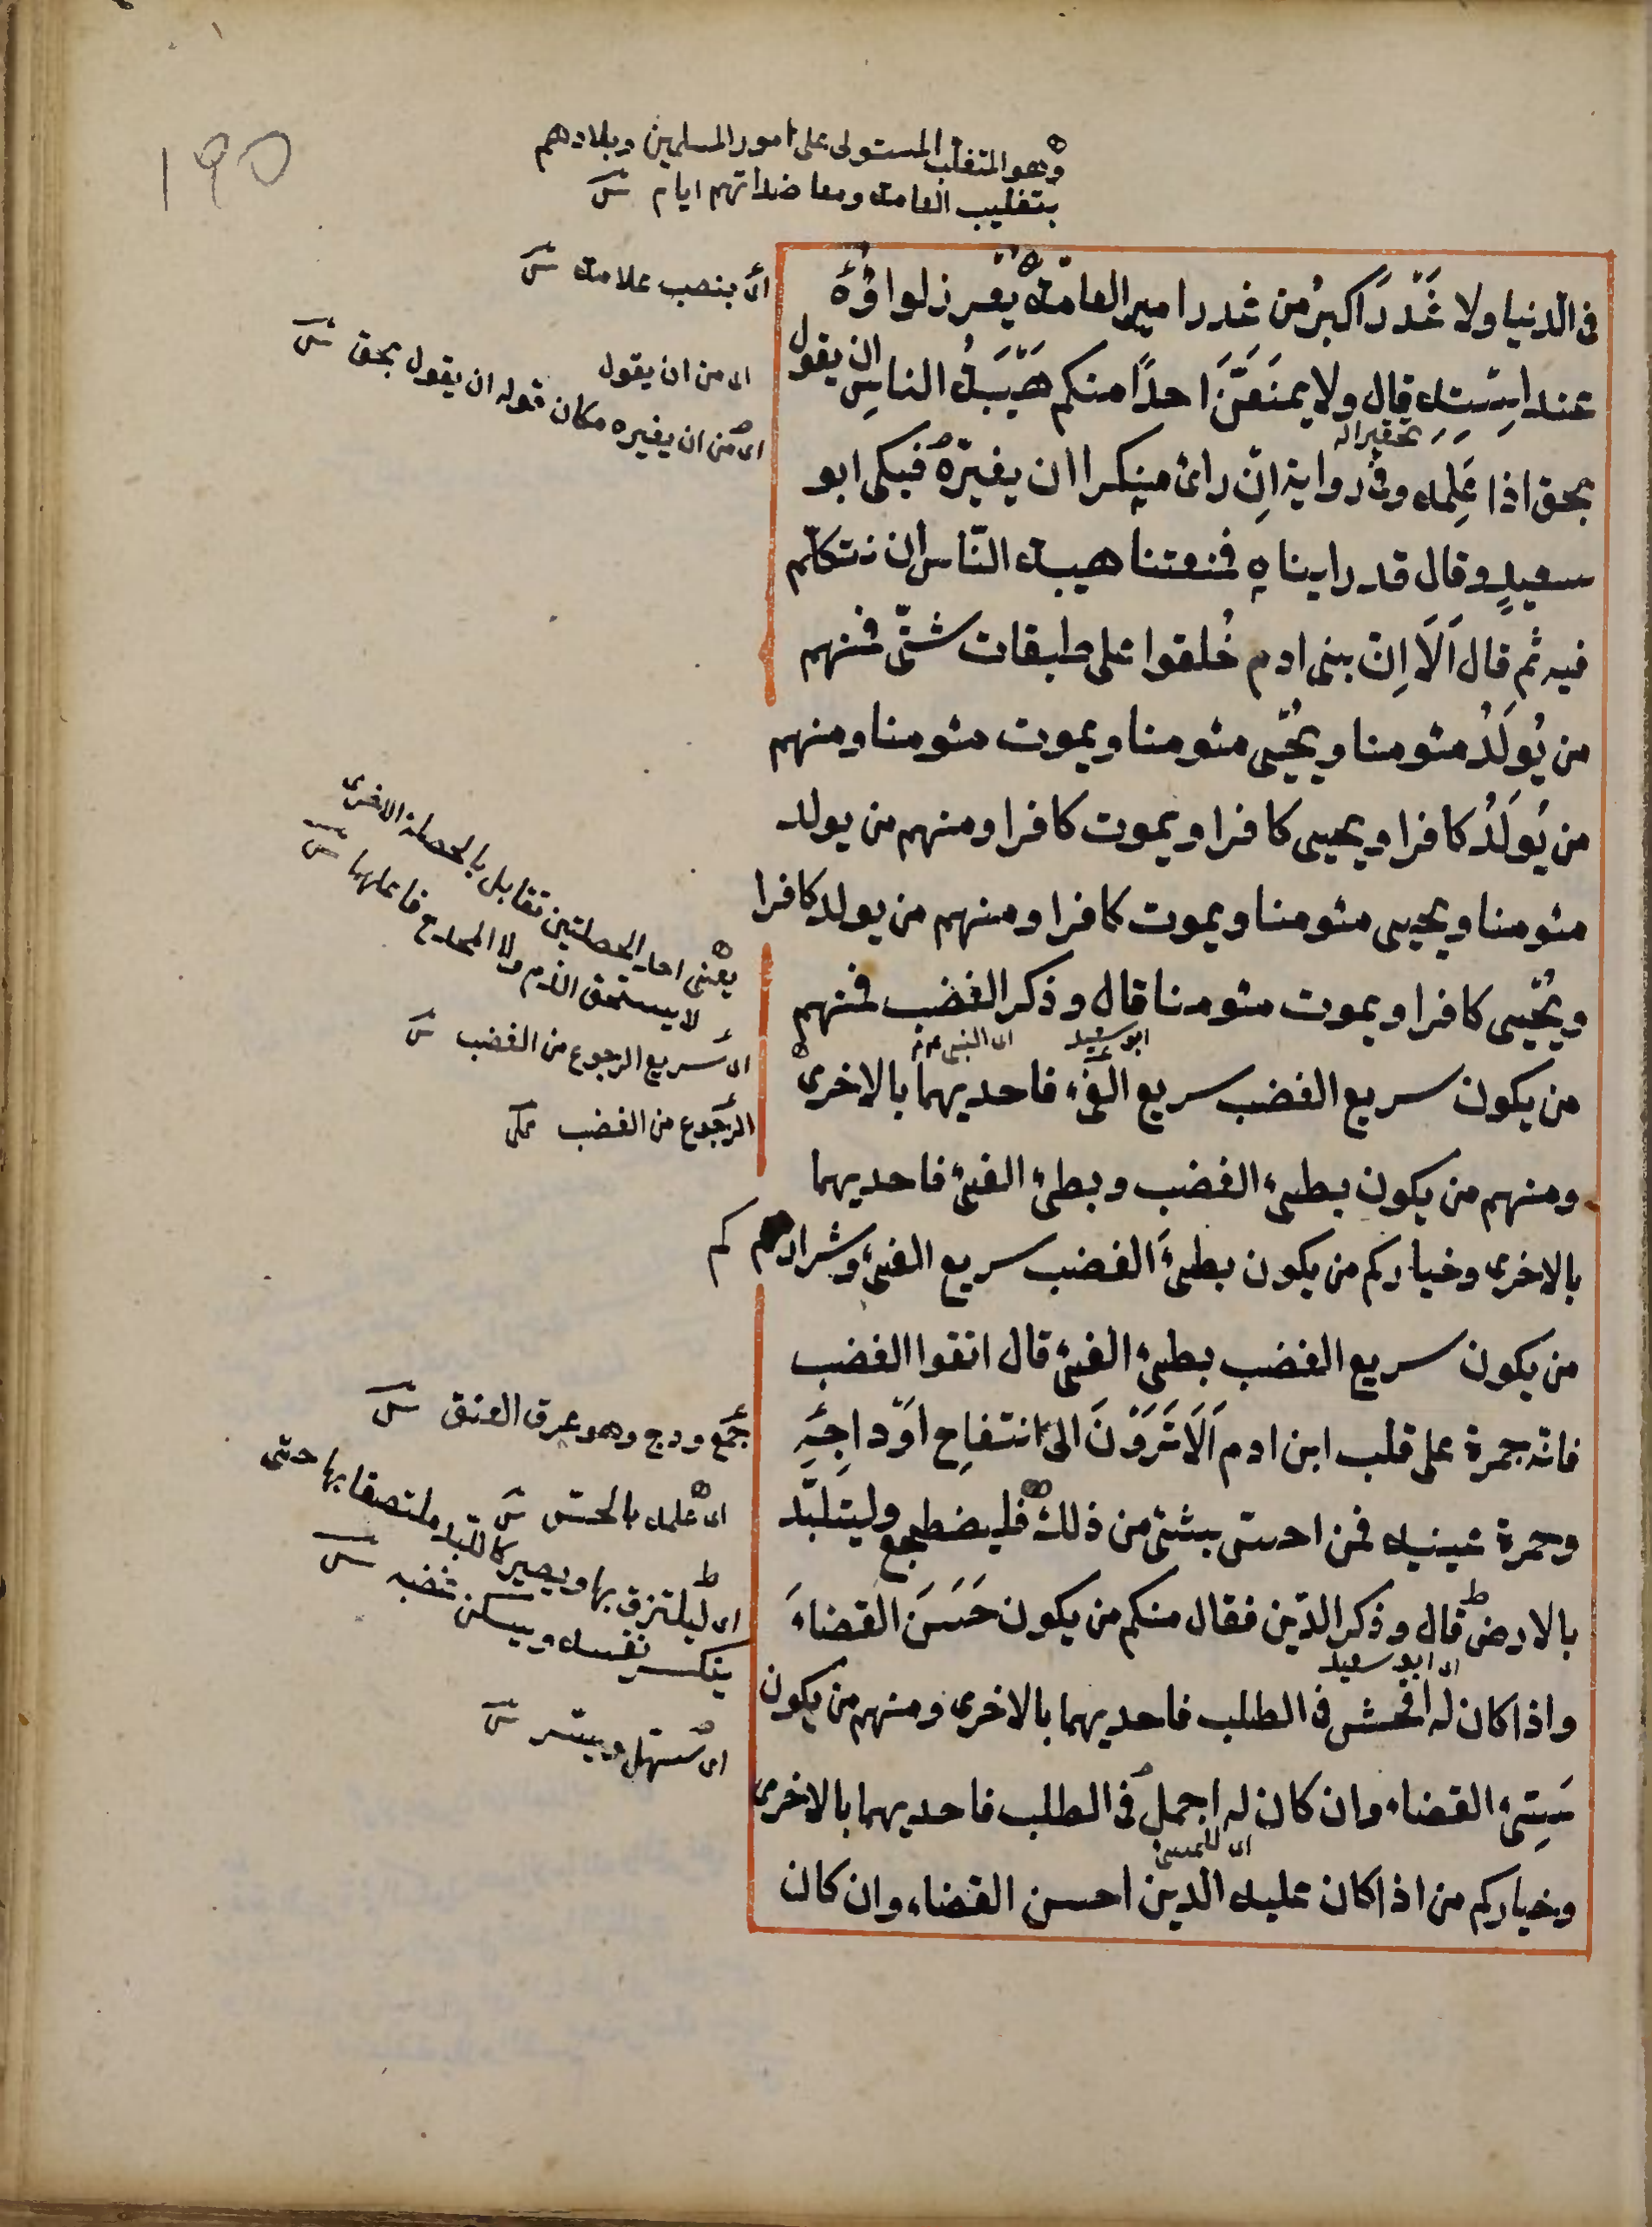 ١٩٥
وهو المتغلب المستولى على امور المسلمين وبلادهم
بتغليب العامة ومعاضداتهم ايام ش
فى الدنيا ولا غَدْرَ اكبرُ من غدر امير العامة يُغرز لواؤُهُ
عند اِسْتِه قال ولا يمنَعَنَّ احدًا منكم هَيْبَةُ الناسِ ان يقول
تحقيرا له
بحق اذا عَلِمه وفى رواية اِنْ راى منكرا ان يغيّره فبكى ابو
سعيدٍ وقال قد رايناه فمنعتنا هيبة النّاس ان نتكلّم
فيه ثم قال اَلَا اِنّ بنى ادم خُلقوا على طبقات شتّى فمنهم
من يُولَدُ مئومنا ويُحْيى مئومنا ويموت مئومنا ومنهم
من يُولَدُ كافرا ويحيى كافرا ويموت كافرا ومنهم من يولد
مئومنا ويحيى مئومنا ويموت كافرا ومنهم من يولد كافرا
ويُحْيى كافرا ويموت مئومنا قال وذكر الغضب فمنهم
ابو سعيد اى النبى عم
من يكون سريع الغضب سريع الفئ فاحديهما بالاخرى
ومنهم من يكون بطيئ الغضب وبطئ الفيئ فاحديهما
بالاخرى وخياركم من يكون بطيئَ الغضب سريع الفيئ وشراركم كم
من يكون سريع الغضب بطيئ الفيئ قال اتقوا الغضب
فانّه جمرة على قلب ابن ادم اَلَا تَرَوْنَ الى انتفاخِ اَوْداجِهِ
وحمرة عينيه فمن احسّ بشئ من ذلك فليضطجع وليتلبّد
بالارض قال وذكر الدّين فقال منكم من يكون حَسَنَ القضاءَ
اى ابو سعيد
واذا كان له افحش فى الطلب فاحديهما بالاخرى ومنهم من يكون
سَيِّئَ القضاء وان كان له اجمل فى الطلب فاحديهما بالاخرى
وخياركم من اذا كان عليه الدين احسن القضاء وان كان
اى بنصب علامة ش
اى من ان يقول
اى من ان يغيره مكان قوله ان يقول بحق ش
يعنى احد الخصلتين تقابل بالخصلة الاخرى
لا يستحق الذم ولا المدح فاعلهما ش
اى سريع الرجوع من الغضب ش
الرجوع من الغضب
جمع ودج وهو عرق العنق ش
اى علمه بالحسّ ش
اى ليلتزق بها ويصير كاللبد ملتصقا بها حتى
ينكسر نفسه ويسكن غضبه ش
اى سهل ويسر ش